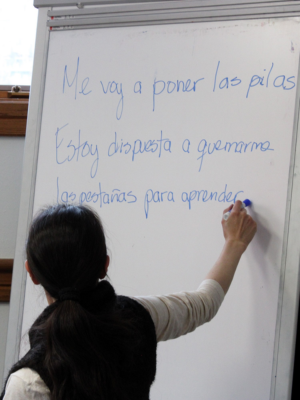 Me voy a poner las pilas
Estoy dispuesta a quemarme
las pestañas para aprender